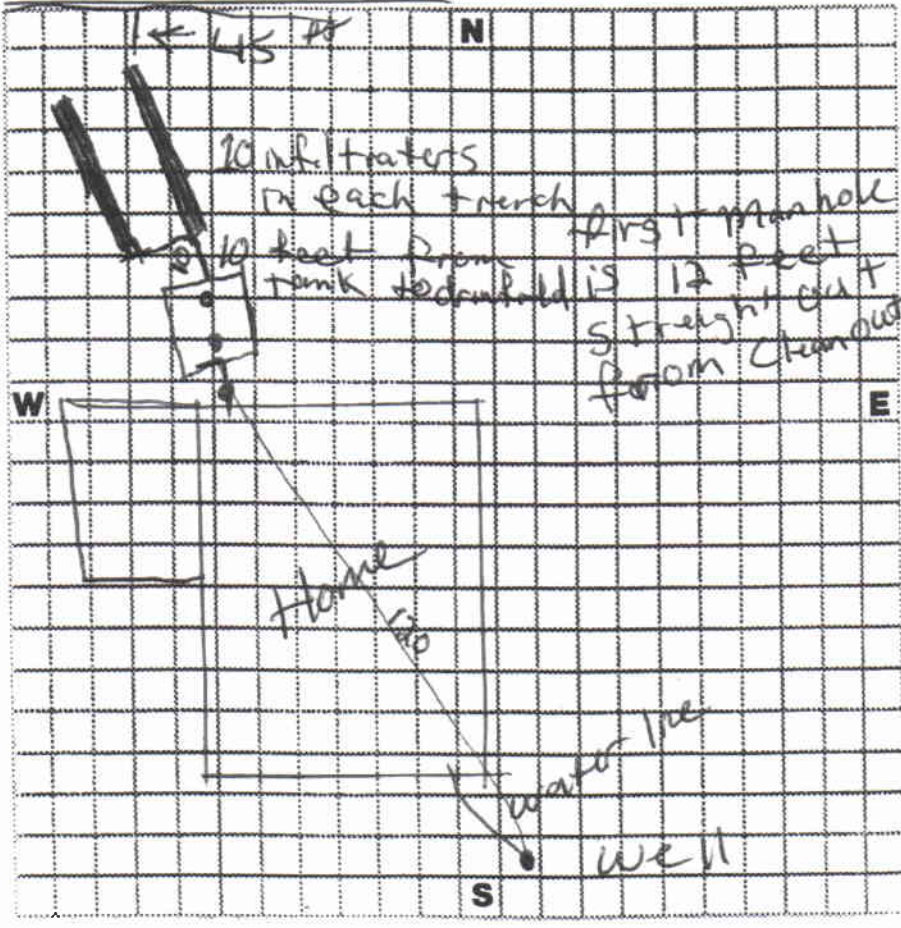 45 ft
N
10 infiltraters
in each trench
10 feet from
tank to drnfield
first manhole
is 12 feet
streight out
from Cleanout
W
E
Home
120
water line
well
S